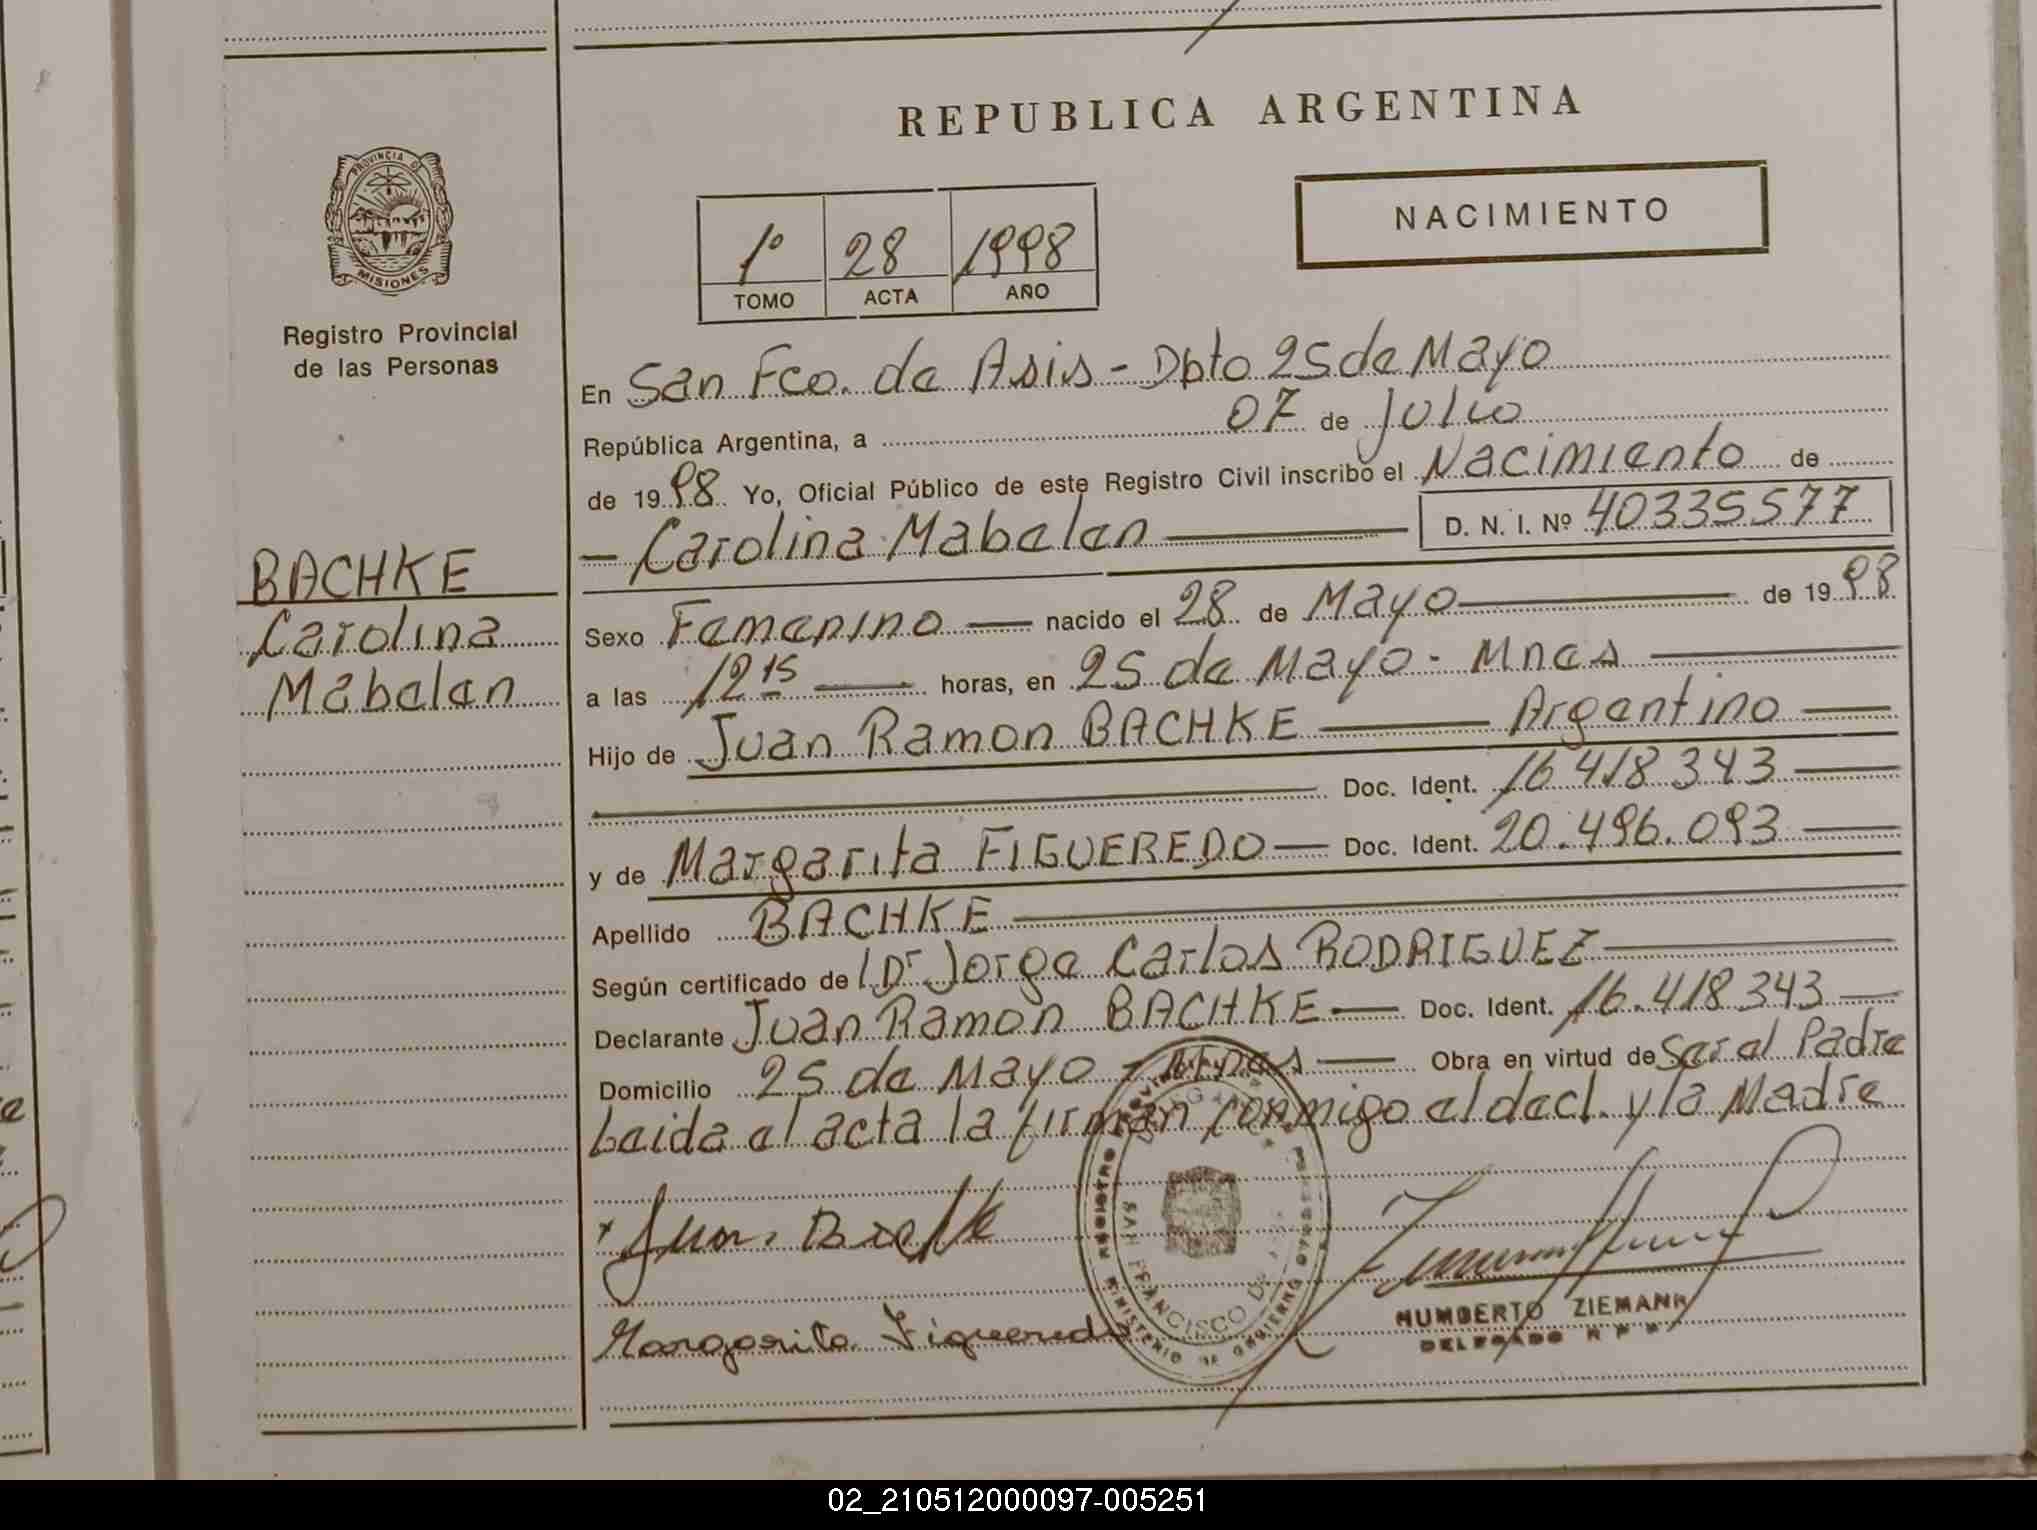 REPUBLICA ARGENTINA
PROVINCIA DE
MISIONES
Registro Provincial
de las Personas
NACIMIENTO
1º 28 1998
TOMO ACTA AÑO
En San Fco. de Asis - Dpto 25 de Mayo
República Argentina, a 07 de Julio
de 1998 Yo, Oficial Público de este Registro Civil inscribo el Nacimiento de
- Carolina Mabelen
D. N. I. Nº 40335577
BACHKE
Carolina
Mabelen
Sexo Femenino nacido el 28 de Mayo de 1998
a las 12 15 horas, en 25 de Mayo - Mnes
Hijo de Juan Ramon BACHKE Argentino
Doc. Ident. 16.418 343
y de Margarita FIGUEREDO Doc. Ident. 20.496.093
Apellido BACHKE
Según certificado de l Dr Jorge Carlos RODRIGUEZ
Declarante Juan Ramon BACHKE Doc. Ident. 16.418 343
Domicilio 25 de Mayo - Mnes Obra en virtud de Ser el Padre
Leida el acta la firman conmigo el decl. y la Madre
Margarita Figueredo
REGISTRO
SAN FRANCISCO DE
MINISTERIO DE GOBIERNO
HUMBERTO ZIEMANN
DELEGADO R P P
02_210512000097-005251